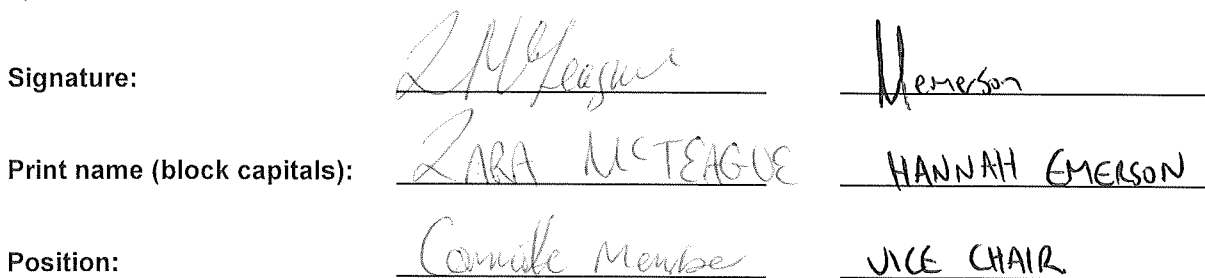 Signature: ZMcTeague Hemerson
Print name (block capitals): ZARA MCTEAGUE HANNAH EMERSON
Position: Committe Member VICE CHAIR